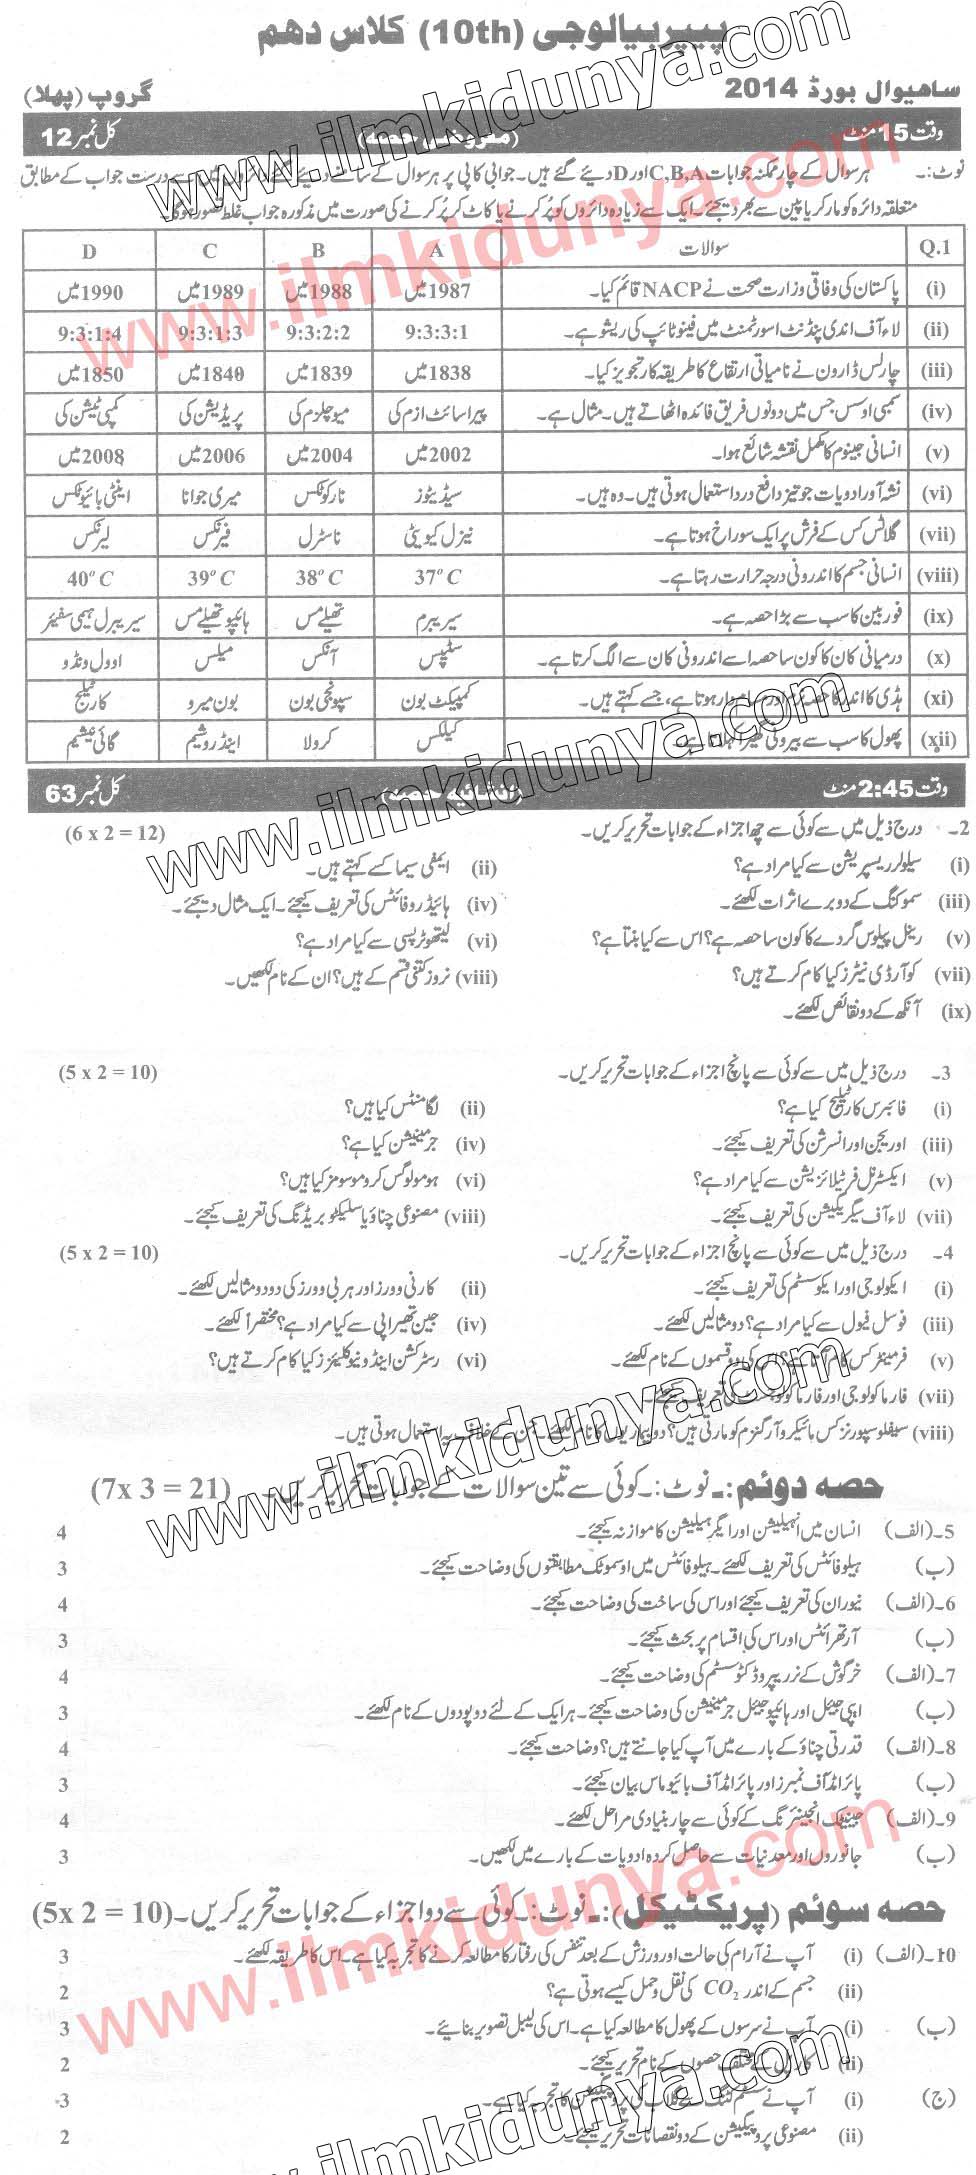 پیپر بیالوجی (10th) کلاس دهم
ساهیوال بورڈ 2014 گروپ (پہلا)
وقت 15 منٹ (معروضی حصہ) کل نمبر 12
نوٹ:۔ ہر سوال کے چار ممکنہ جوابات C,B,A اور D دیئے گئے ہیں۔ جوابی کاپی پر ہر سوال کے سامنے دیئے گئے دائروں میں سے درست جواب کے مطابق
متعلقہ دائرہ کو مارکر یا پین سے بھر دیجئے۔ ایک سے زیادہ دائروں کو پُر کرنے یا کاٹ کر پُر کرنے کی صورت میں مذکورہ جواب غلط تصور ہوگا۔
Q.1 سوالات A B C D
(i) پاکستان کی وفاقی وزارت صحت نے NACP قائم کیا۔ 1987 میں 1988 میں 1989 میں 1990 میں
(ii) لاء آف انڈی پنڈنٹ اسورٹمنٹ میں فینوٹائپ کی ریشو ہے۔ 9:3:3:1 9:3:2:2 9:3:1:3 9:3:1:4
(iii) چارلس ڈارون نے نامیاتی ارتقاء کا طریقہ کار تجویز کیا۔ 1838 میں 1839 میں 1840 میں 1850 میں
(iv) سمبی اوسس جس میں دونوں فریق فائدہ اٹھاتے ہیں۔ مثال ہے۔ پیراسائٹ ازم کی میوچلزم کی پریڈیشن کی کمپیٹیشن کی
(v) انسانی جینوم کا مکمل نقشہ شائع ہوا۔ 2002 میں 2004 میں 2006 میں 2008 میں
(vi) نشہ آور ادویات جو تیز دافع درد استعمال ہوتی ہیں۔ وہ ہیں۔ سیڈیٹوز نارکوٹکس میری جوانا اینٹی بائیوٹکس
(vii) گلاٹس کس کے فرش پر ایک سوراخ ہوتا ہے۔ نیزل کیویٹی ناسٹرل فیرنکس لیرنکس
(viii) انسانی جسم کا اندرونی درجہ حرارت رہتا ہے۔ 37°C 38°C 39°C 40°C
(ix) فوربین کا سب سے بڑا حصہ ہے۔ سیریبرم تھیلے مس ہائپو تھیلے مس سیریبرل ہیمی سفیئر
(x) درمیانی کان کا کون سا حصہ اسے اندرونی کان سے الگ کرتا ہے۔ سٹیپس آنکس میلس اوول ونڈو
(xi) ہڈی کا اندر کا حصہ نرم اور مسام دار ہوتا ہے، جسے کہتے ہیں۔ کمپیکٹ بون سپونجی بون بون میرو کارٹلیج
(xii) پھول کا سب سے بیرونی گھیرا کہلاتا ہے۔ کیلکس کرولا اینڈروشیم گائی نیشیم
وقت 2:45 منٹ (انشائیہ حصہ) کل نمبر 63
2۔ درج ذیل میں سے کوئی سے چھ اجزاء کے جوابات تحریر کریں۔ (6 x 2 = 12)
(i) سیلولر ریسپریشن سے کیا مراد ہے؟ (ii) ایمفی سیما کسے کہتے ہیں۔
(iii) سموکنگ کے دو برے اثرات لکھئے۔ (iv) ہائیڈروفائٹس کی تعریف کیجئے۔ ایک مثال دیجئے۔
(v) رینل پیلوس گردے کا کون سا حصہ ہے؟ اس سے کیا بنتا ہے؟ (vi) لیتھوٹرپسی سے کیا مراد ہے؟
(vii) کوآرڈی نیٹرز کیا کام کرتے ہیں؟ (viii) نروز کتنی قسم کے ہیں؟ ان کے نام لکھیں۔
(ix) آنکھ کے دو نقائص لکھئے۔
3۔ درج ذیل میں سے کوئی سے پانچ اجزاء کے جوابات تحریر کریں۔ (5 x 2 = 10)
(i) فائبرس کارٹلیج کیا ہے؟ (ii) لگامنٹس کیا ہیں؟
(iii) اوریجن اور انسرشن کی تعریف کیجئے۔ (iv) جرمینیشن کیا ہے؟
(v) ایکسٹرنل فرٹیلائزیشن سے کیا مراد ہے؟ (vi) ہومولوگس کروموسومز کیا ہیں؟
(vii) لاء آف سیگریگیشن کی تعریف کیجئے۔ (viii) مصنوعی چناؤ یا سلیکٹو بریڈنگ کی تعریف کیجئے۔
4۔ درج ذیل میں سے کوئی سے پانچ اجزاء کے جوابات تحریر کریں۔ (5 x 2 = 10)
(i) ایکولوجی اور ایکوسسٹم کی تعریف کیجئے۔ (ii) کارنی وورز اور ہربی وورز کی دو دو مثالیں لکھئے۔
(iii) فوسل فیول سے کیا مراد ہے؟ دو مثالیں لکھئے۔ (iv) جین تھیراپی سے کیا مراد ہے؟ مختصراً لکھئے۔
(v) فرمینٹر کس کام آتا ہے؟ اس کی دو قسموں کے نام لکھئے۔ (vi) رسٹرکشن اینڈونیوکلیئز کیا کام کرتے ہیں؟
(vii) فارماکولوجی اور فارماکولوجسٹ کی تعریف کیجئے۔
(viii) سیفلوسپورنز کس مائیکرو آرگنزم کو مارتی ہیں؟ دو بیماریوں کا نام لکھئے۔ جن کے خلاف یہ استعمال ہوتی ہیں۔
حصہ دوئم :۔ نوٹ:۔ کوئی سے تین سوالات کے جوابات تحریر کریں۔ (7x 3 = 21)
5۔(الف) انسان میں انہیلیشن اور ایگزہیلیشن کا موازنہ کیجئے۔ 4
(ب) ہیلوفائٹس کی تعریف لکھئے۔ ہیلوفائٹس میں اوسموٹک مطابقتوں کی وضاحت کیجئے۔ 3
6۔(الف) نیوران کی تعریف کیجئے اور اس کی ساخت کی وضاحت کیجئے۔ 4
(ب) آرتھرائٹس اور اس کی اقسام پر بحث کیجئے۔ 3
7۔(الف) خرگوش کے نر ریپروڈکٹو سسٹم کی وضاحت کیجئے۔ 4
(ب) ایپی جیئل اور ہائپوجیئل جرمینیشن کی وضاحت کیجئے۔ ہر ایک کے لئے دو پودوں کے نام لکھئے۔ 3
8۔(الف) قدرتی چناؤ کے بارے میں آپ کیا جانتے ہیں؟ وضاحت کیجئے۔ 4
(ب) پائرامڈ آف نمبرز اور پائرامڈ آف بائیوماس بیان کیجئے۔ 3
9۔(الف) جینیٹک انجینئرنگ کے کوئی سے چار بنیادی مراحل لکھئے۔ 4
(ب) جانوروں اور معدنیات سے حاصل کردہ ادویات کے بارے میں لکھیں۔ 3
حصہ سوئم (پریکٹیکل) :۔ نوٹ:۔ کوئی سے دو اجزاء کے جوابات تحریر کریں۔ (5x 2 = 10)
10۔(الف) (i) آپ نے آرام کی حالت اور ورزش کے بعد تنفس کی رفتار کا مطالعہ کرنے کا تجربہ کیا ہے۔ اس کا طریقہ لکھئے۔ 3
(ii) جسم کے اندر CO2 کی نقل و حمل کیسے ہوتی ہے؟ 2
(ب) (i) آپ نے سرسوں کے پھول کا مطالعہ کیا ہے۔ اس کی لیبل تصویر بنائیے۔ 3
(ii) کارپل کے مختلف حصوں کے نام تحریر کیجئے۔ 2
(ج) (i) آپ نے سٹم کٹنگ سے گلاب کی پروپیگیشن کا تجربہ کیا ہے۔ 3
(ii) مصنوعی پروپیگیشن کے دو نقصانات تحریر کیجئے۔ 2
www.ilmkidunya.com
www.ilmkidunya.com
www.ilmkidunya.com
www.ilmkidunya.com
www.ilmkidunya.com
www.ilmkidunya.com